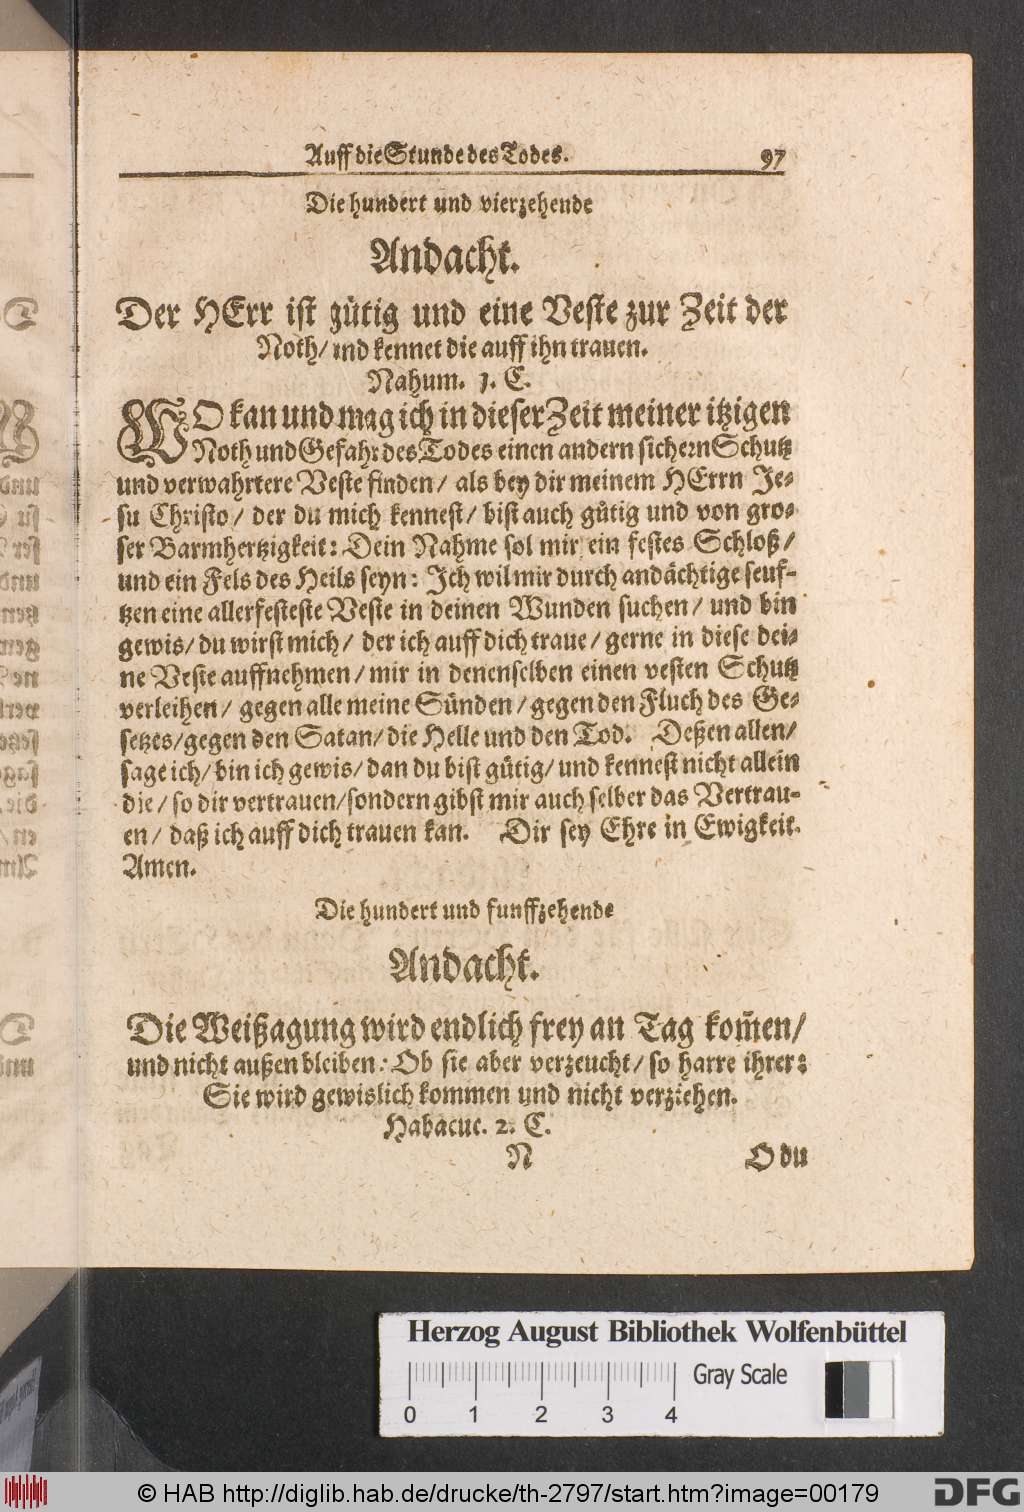 Auff die Stunde des Todes. 97
Die hundert und vierzehende
Andacht.
Der HErr ist gütig und eine Veste zur Zeit der
Noth/ und kennet die auff ihn trauen.
Nahum. 1. C.
WO kan und mag ich in dieser Zeit meiner itzigen
Noth und Gefahr des Todes einen andern sichern Schutz
und verwahrtere Veste finden/ als bey dir meinem HErrn Je-
su Christo/ der du mich kennest/ bist auch gütig und von gros-
ser Barmhertzigkeit: Dein Nahme sol mir ein festes Schloß/
und ein Fels des Heils seyn: Ich wil mir durch andächtige seuf-
tzen eine allerfesteste Veste in deinen Wunden suchen/ und bin
gewis/ du wirst mich/ der ich auff dich traue/ gerne in diese dei-
ne Veste auffnehmen/ mir in denenselben einen vesten Schutz
verleihen/ gegen alle meine Sünden/ gegen den Fluch des Ge-
setzes/ gegen den Satan/ die Helle und den Tod. Deßen allen/
sage ich/ bin ich gewis/ dan du bist gütig/ und kennest nicht allein
die/ so dir vertrauen/ sondern gibst mir auch selber das Vertrau-
en/ daß ich auff dich trauen kan. Dir sey Ehre in Ewigkeit.
Amen.
Die hundert und funffzehende
Andacht.
Die Weißagung wird endlich frey an Tag kom̃en/
und nicht außen bleiben: Ob sie aber verzeucht/ so harre ihrer:
Sie wird gewislich kommen und nicht verziehen.
Habacuc. 2. C.
N O du
Herzog August Bibliothek Wolfenbüttel
Gray Scale
0 1 2 3 4
© HAB http://diglib.hab.de/drucke/th-2797/start.htm?image=00179
DFG